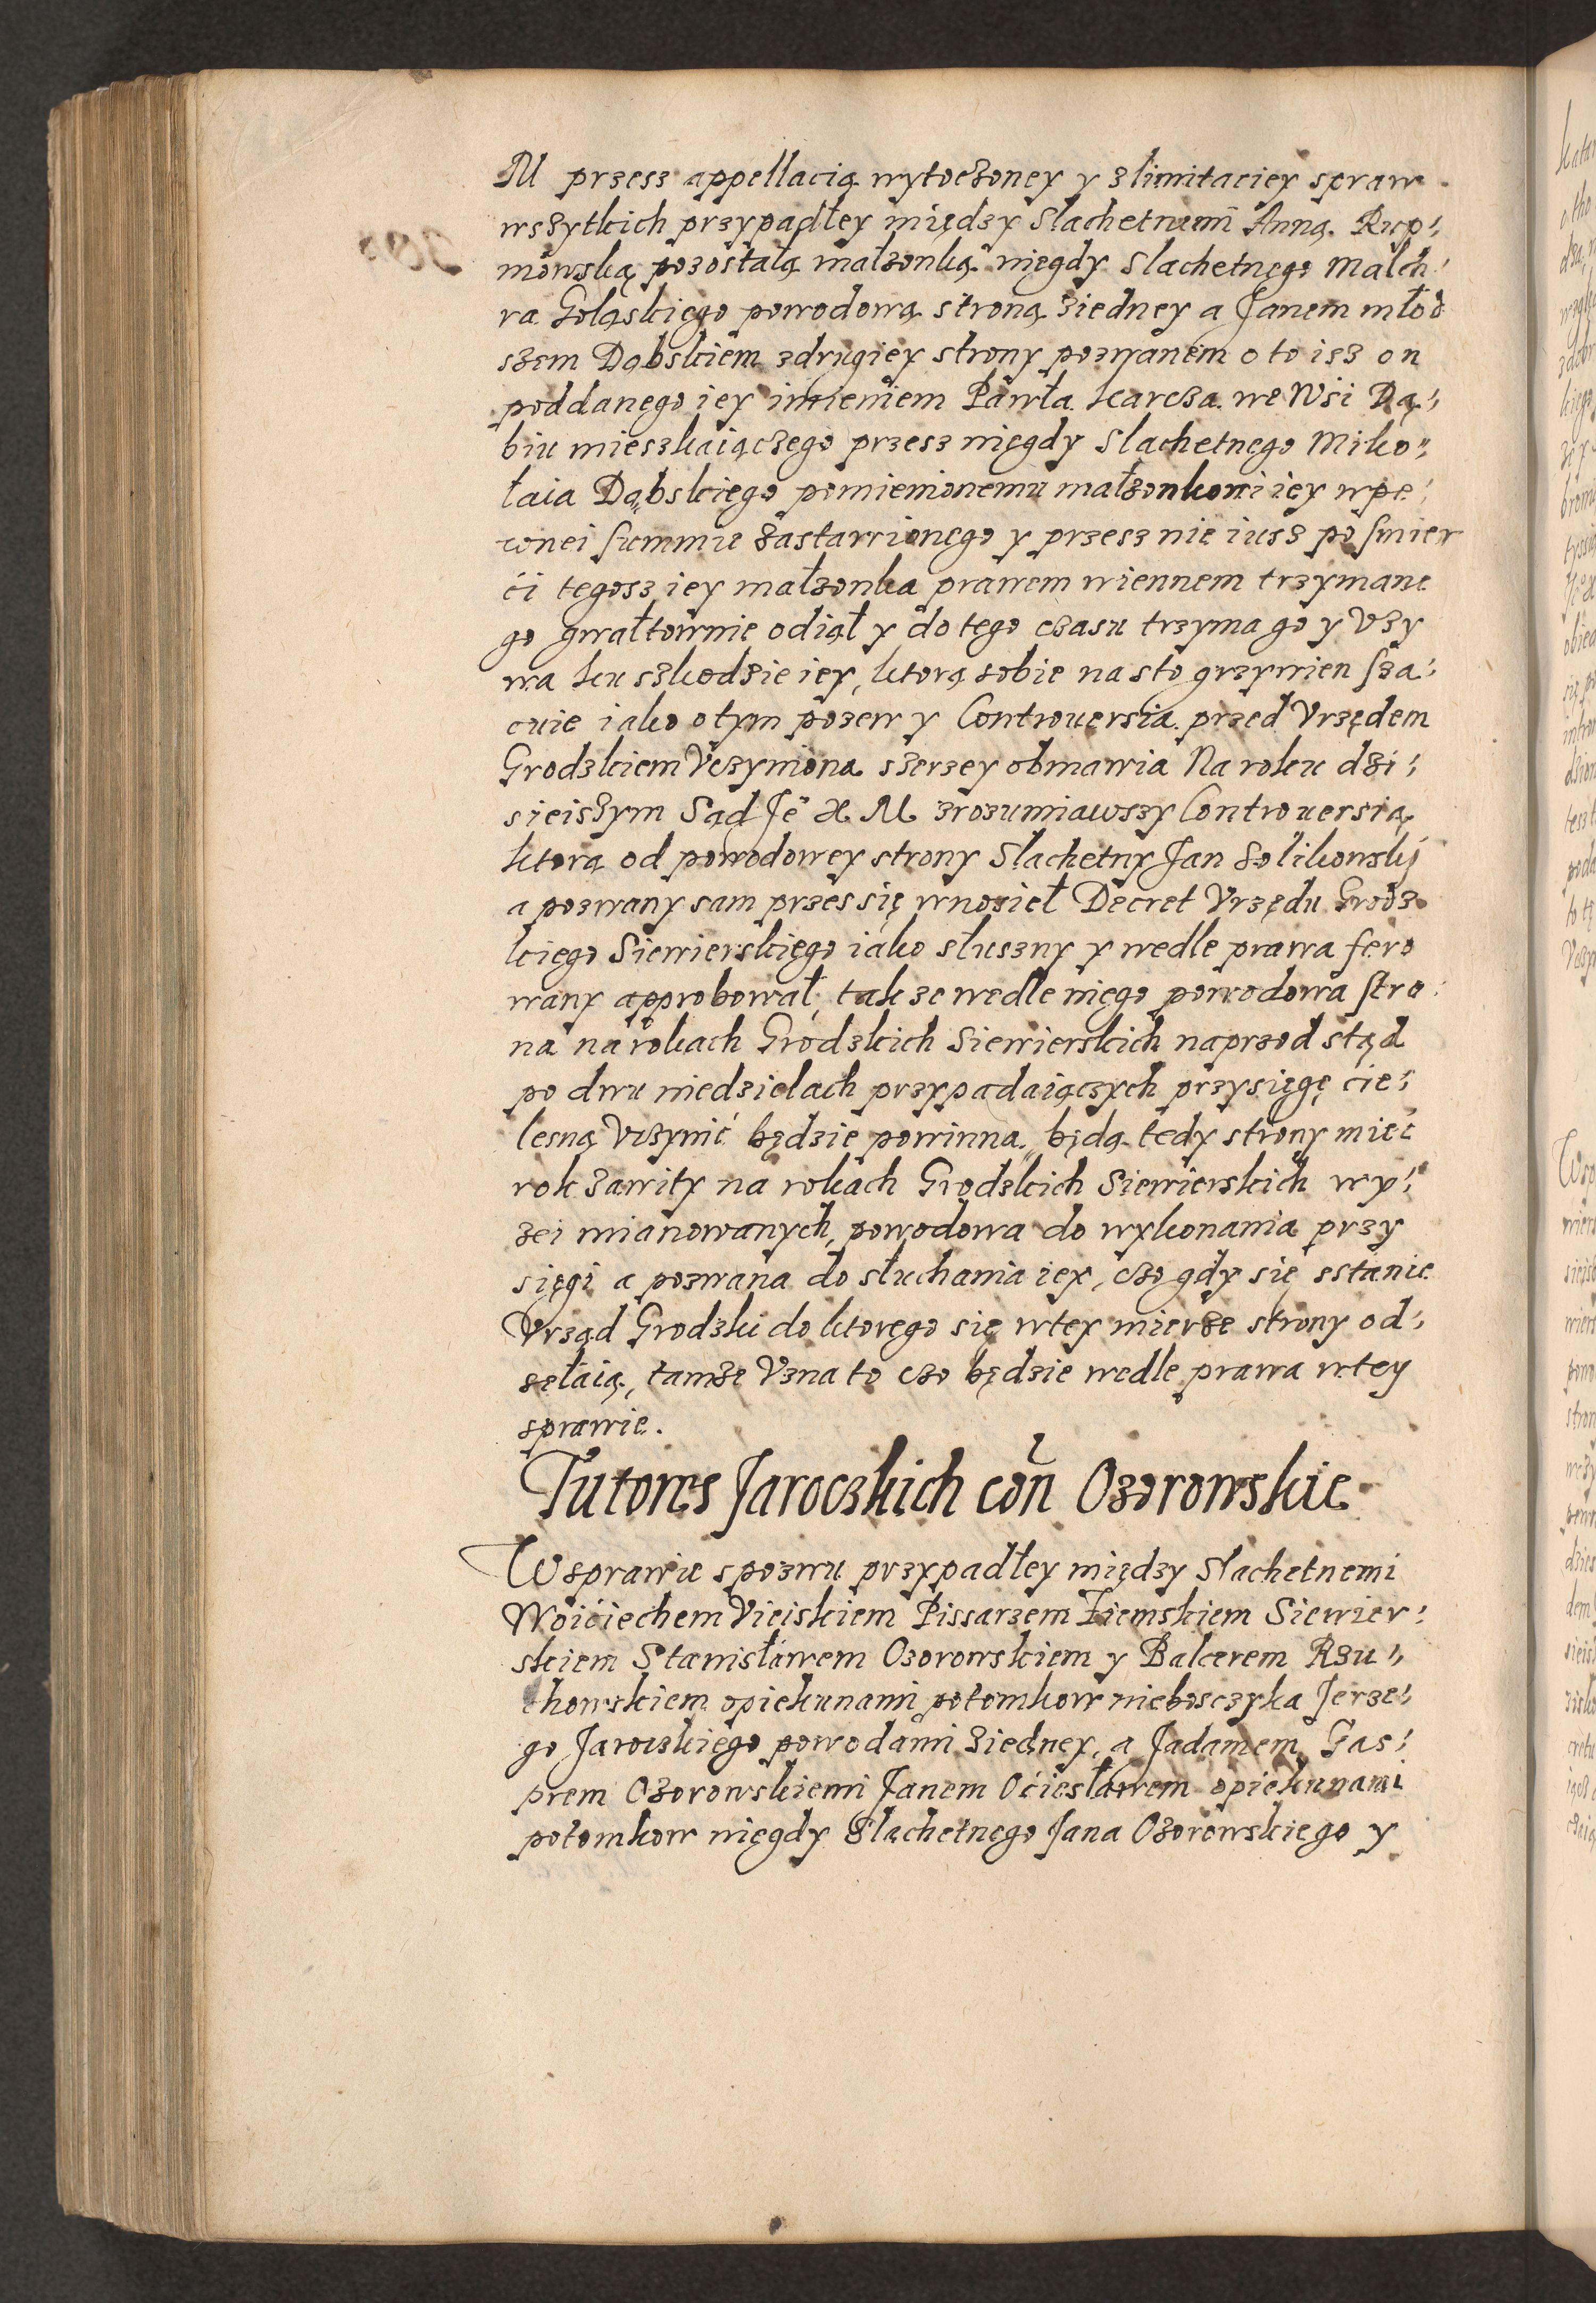 M przesz appellacią wytoczoney y zlimitaciey spraw
wszytkich przypadłey między Slachetnumi Anną Rup:
mowską pozostałą małzonką niegdy Slachetnego Malch:
ra Goląskiego powodową stroną ziedney a Janem młod
szem Dąbskiem zdrugiey strony pozwanem o to isz on
poddanego iey imieniem Pawła karcza we Wsi Dą:
biu mieszkaiączego przesz niegdy Slachetnego Miko:
łaia Dąbskiego pomienionemu małzonkowi iey wpe:
wnei summie zastawionego y przesz nie iusz po smier
ći tegosz iey małzonka prawem wiennem trzymane
go gwałtownie odiął y do tego czasu trzyma go y Vzy
wa ku szkodzie iey, ktorą sobie na sto grzywien sza:
cuie iako otym pozew y Controuersia przed Vrzędem
Grodzkiem Vczyniona szerzey obmawia Na roku dzi:
sieiszym Sąd Je° X. M. zrozumiawszy Controuersią
ktorą od powodowey strony Slachetny Jan Solikowsky
a pozwany sam przes się wnosieł Decret Vrzędu Grodz
kiego Siewierskiego iako słuszny y wedle prawa fero
wany approbował, tak ze wedle niego powodowa stro:
na na rokach Grodzkich Siewierskich naprzod stąd
po dwu niedzielach przypadaiączych przysięgę cie:
lesną Vczynić będzie powinna, będą tedy strony mieć
rok zawity na rokach Grodzkich Siewierskich wy:
zei mianowanych, powodowa do wykonania przy
sięgi a pozwana do słuchania iey, czo gdy się sstanie
Vrząd Grodzki do ktorego się wtey mierze strony od:
sełaią, tamze Vzna to czo będzie wedle prawa wtey
sprawie.
Tutores Jaroczkich coñ Ozorowskie
W sprawie spozwu przypadłey między Slachetnemi
Woićiechem Vieiskiem Pissarzem Ziemskiem Siewier:
skiem Stanisławem Ozorowskiem y Balcerem Rzu:
chowskiem opiekunami potomkow nieboszczyka Jerze:
go Jaroczkiego powodami ziedney, a Jadamem Gas:
prem Ozorowskiemi Janem Oćiesławem opiekunami
potomkow niegdy Slachetnego Jana Ozorowskiego y